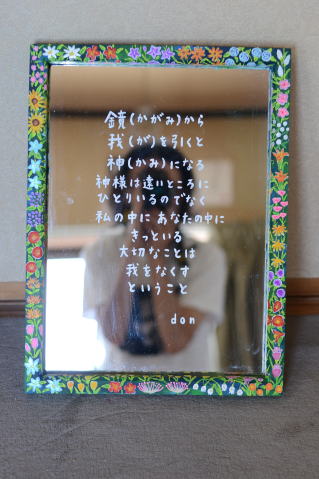 鏡(かがみ)から
我(が)を引くと
神(かみ)になる
神様は遠いところに
ひとりいるのでなく
私の中に あなたの中に
きっといる
大切なことは
我をなくす
ということ
don